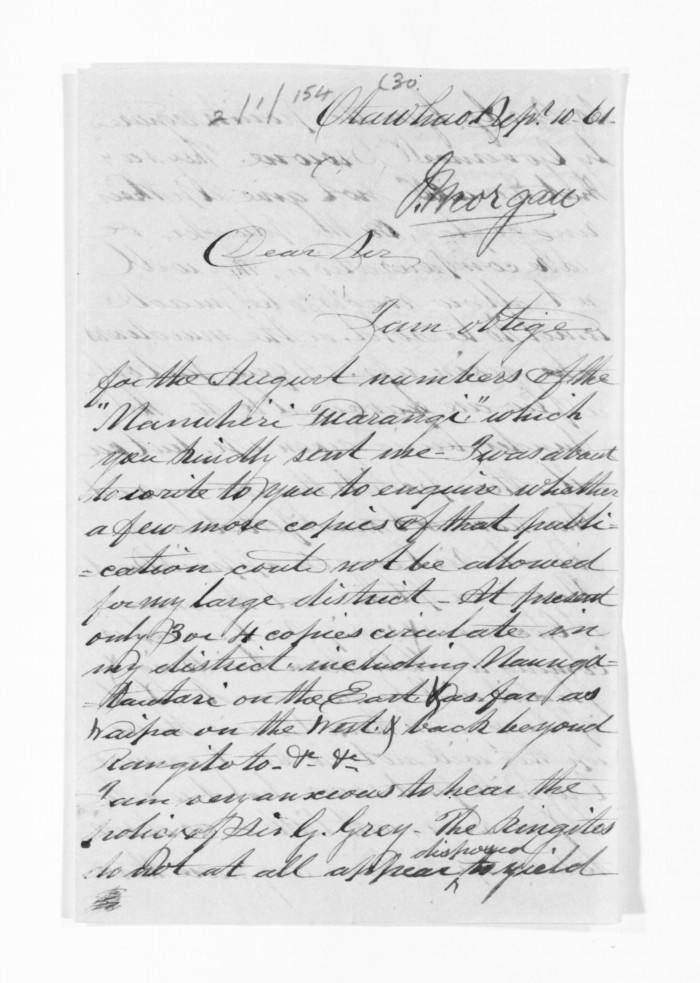 154
(30.
Otawhao Sept. 10. 61.
J. Morgan
Dear Sir
I am oblige
for the August numbers of the
"Manuhiri Tuarangi" which
you kindly sent me - I was about
to write to you to enquire whether
a few more copies of that publi-
=cation could not be allowed
for my large district - At present
only 3 or 4 copies circulate in
my district including Maunga-
=tautari on the East & as far as
Waipa on the West & back beyond
Rangitoto - &c &c
I am very anxious to hear the
policy of Sir G. Grey - The Kingites
do not at all appear disposed to yield